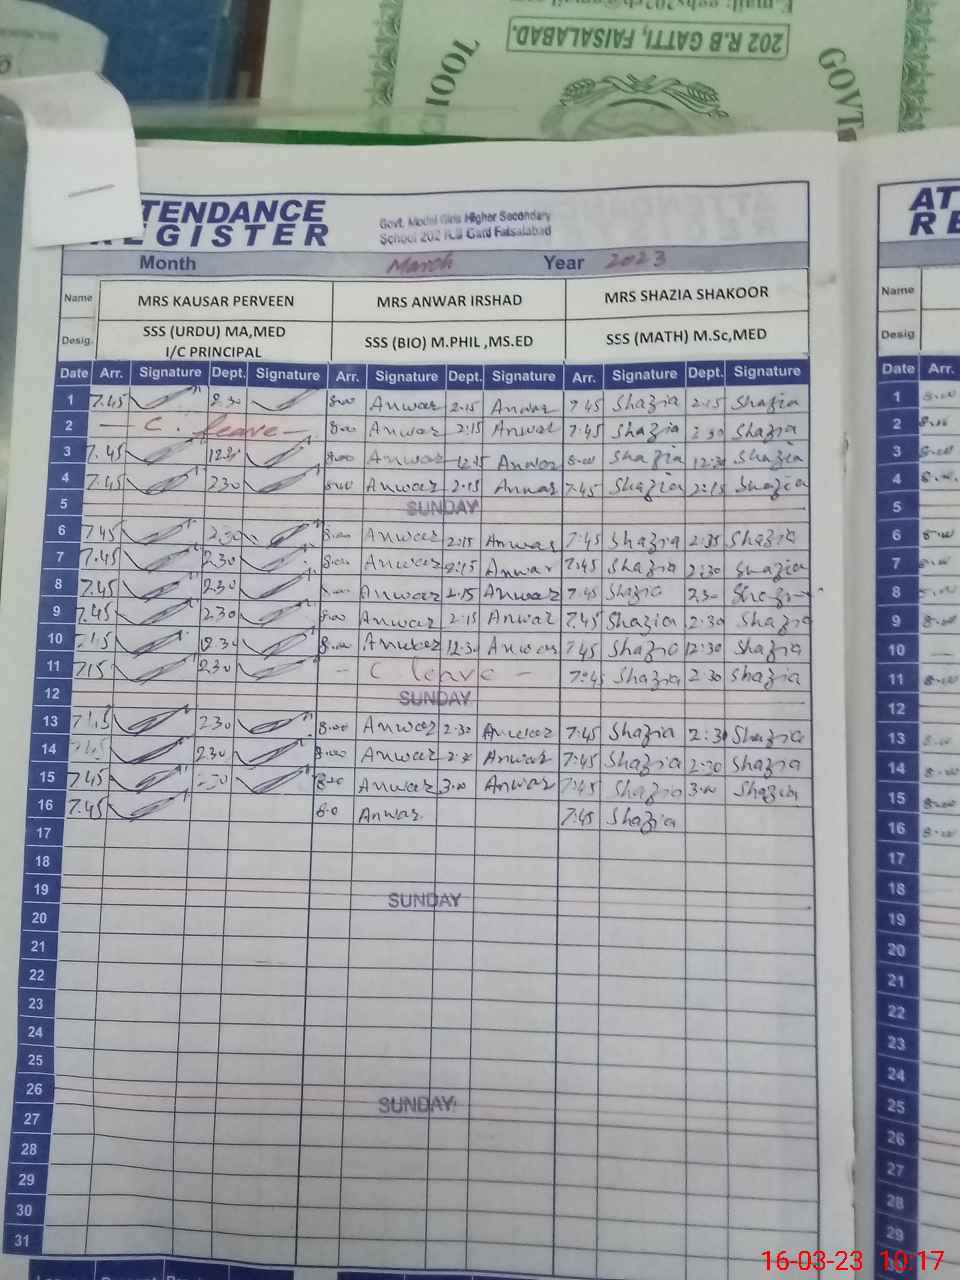 202 R.B GATTI, FAISALABAD.
GOVT
ATTENDANCE
REGISTER
Govt. Model Girls Higher Secondary
School 202 R.B Gatti Faisalabad
Month March Year 2023
Name MRS KAUSAR PERVEEN MRS ANWAR IRSHAD MRS SHAZIA SHAKOOR Name
Desig. SSS (URDU) MA,MED I/C PRINCIPAL SSS (BIO) M.PHIL ,MS.ED SSS (MATH) M.Sc,MED Desig
Date Arr. Signature Dept. Signature Arr. Signature Dept. Signature Arr. Signature Dept. Signature Date Arr.
1 7.45 2.30 8.00 Anwar 2.15 Anwar 7.45 Shazia 2.15 Shazia 1
2 — C. leave — 8.00 Anwar 2:15 Anwar 7:45 Shazia 2:30 Shazia 2
3 7.45 8.00 Anwar Anwar 8.00 Shazia 12:30 Shazia 3
4 7.45 2.30 8.00 Anwar 2.15 Anwar 7.45 Shazia 2:15 Shazia 4
5 SUNDAY 5
6 7.45 2.30 8.00 Anwar 2.15 Anwar 7:45 Shazia Shazia 6
7 7.45 2.30 8.00 Anwar 2:15 Anwar 7:45 Shazia 2:30 Shazia 7
8 7.45 2.30 Anwar 2.15 Anwar 7.45 Shazia 2.30 Shazia 8
9 7.45 2.30 8.00 Anwar 2.15 Anwar 7.45 Shazia 2:30 Shazia 9
10 12.30 8.00 Anwar 12.30 Anwar 7.45 Shazia 12:30 Shazia 10
11 2.30 — C leave — 7:45 Shazia 2:30 Shazia 11
12 SUNDAY 12
13 2.30 8.00 Anwar 2.30 Anwar 7:45 Shazia 2:30 Shazia 13
14 2.30 8.00 Anwar Anwar 7:45 Shazia 2:30 Shazia 14
15 7.45 8.00 Anwar 3.00 Anwar 7:45 Shazia 3.00 Shazia 15
16 7.45 8.0 Anwar 7:45 Shazia 16
17 17
18 18
19 SUNDAY 19
20 20
21 21
22 22
23 23
24 24
25 25
26 SUNDAY 26
27 27
28 28
29 29
30
31
16-03-23 10:17